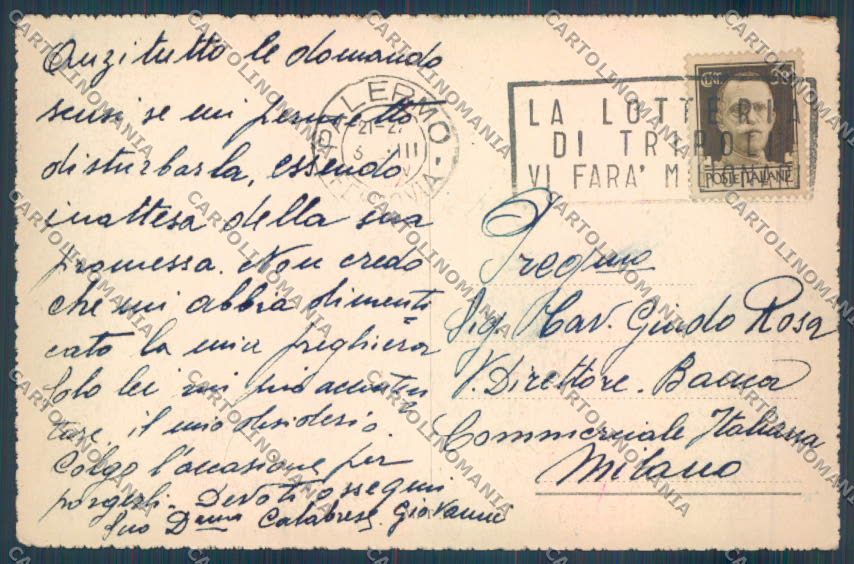 Anzitutto le domando
scusi se mi permetto
disturbarla, essendo
inattesa della sua
promessa. Non credo
che mi abbia dimenti=
cato la mia preghiera
Solo lei mi può acconten
tare, il mio desiderio.
Colgo l'occasione per
porgerli. Devoti ossequi
Suo Dmo Calabrese Giovanni
PALERMO
FERROVIA
LA LOTTERIA
DI TRIPOLI
VI FARA' MI
POSTE ITALIANE
Pregmo
Sig. Cav. Guido Rosa
V. Direttore. Banca
Commerciale Italiana
Milano
CARTOLINOMANIA